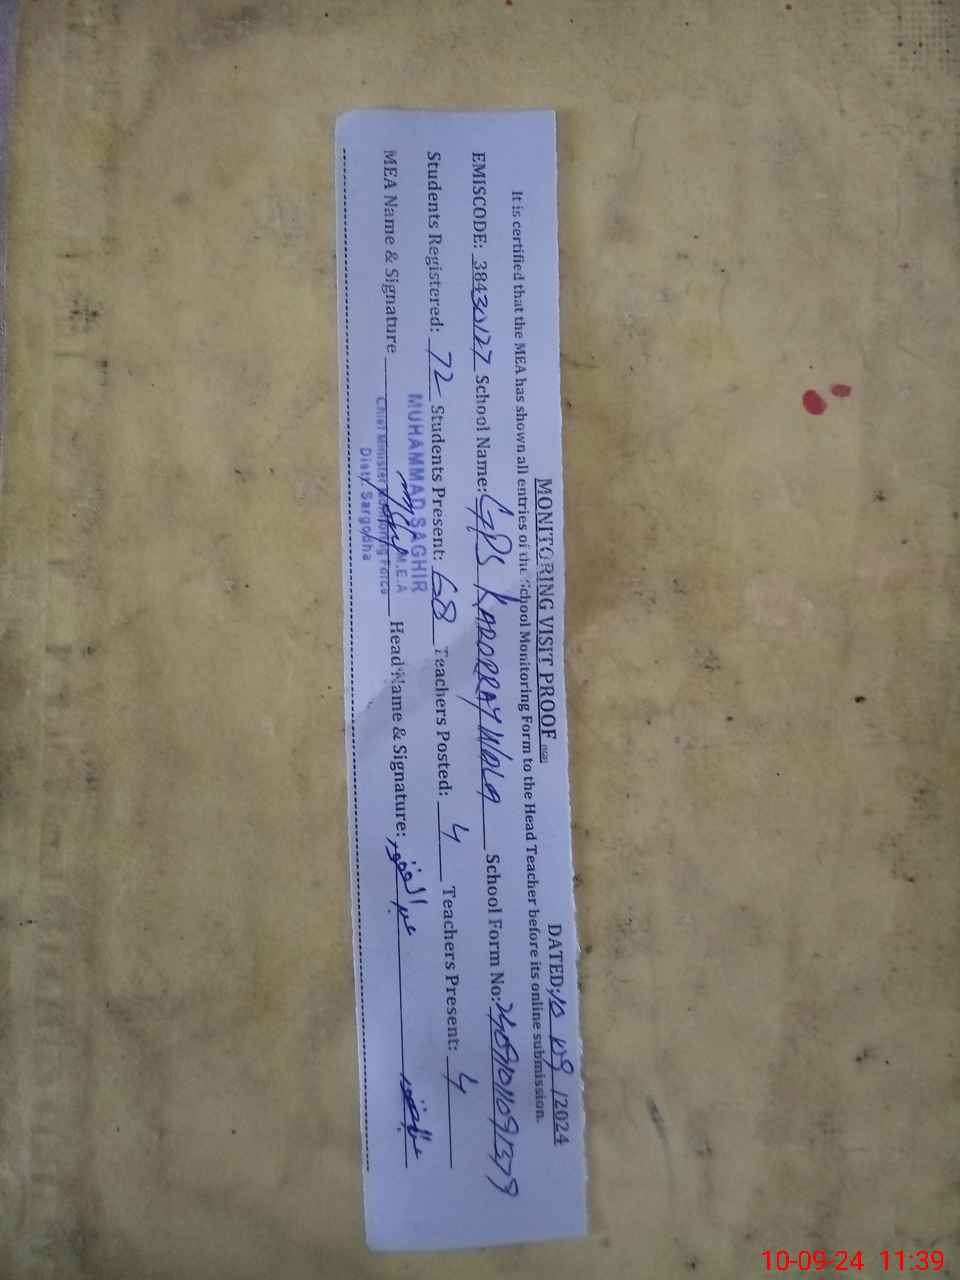 MONITORING VISIT PROOF DATED: 10 / 09 /2024
It is certified that the MEA has shown all entries of the School Monitoring Form to the Head Teacher before its online submission.
EMISCODE: 38430127 School Name: GPS School Form No:
Students Registered: 72 Students Present: 68 Teachers Posted: 4 Teachers Present: 4
MEA Name & Signature Head Name & Signature: عبدالغفور
MUHAMMAD SAGHIR
M.E.A
Chief Minister Monitoring Force
Distt. Sargodha
10-09-24 11:39